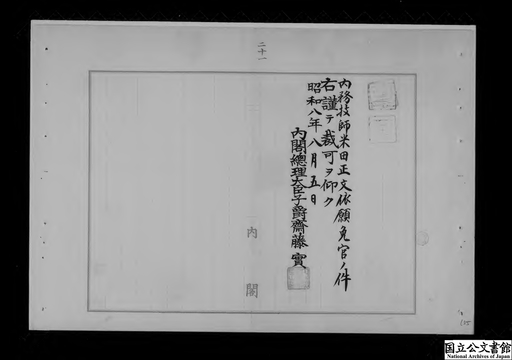 二十一
内務技師米田正文依願免官ノ件
右謹テ裁可ヲ仰ク
昭和八年八月五日
内閣總理大臣子爵齋藤實
内閣
国立公文書館
National Archives of Japan